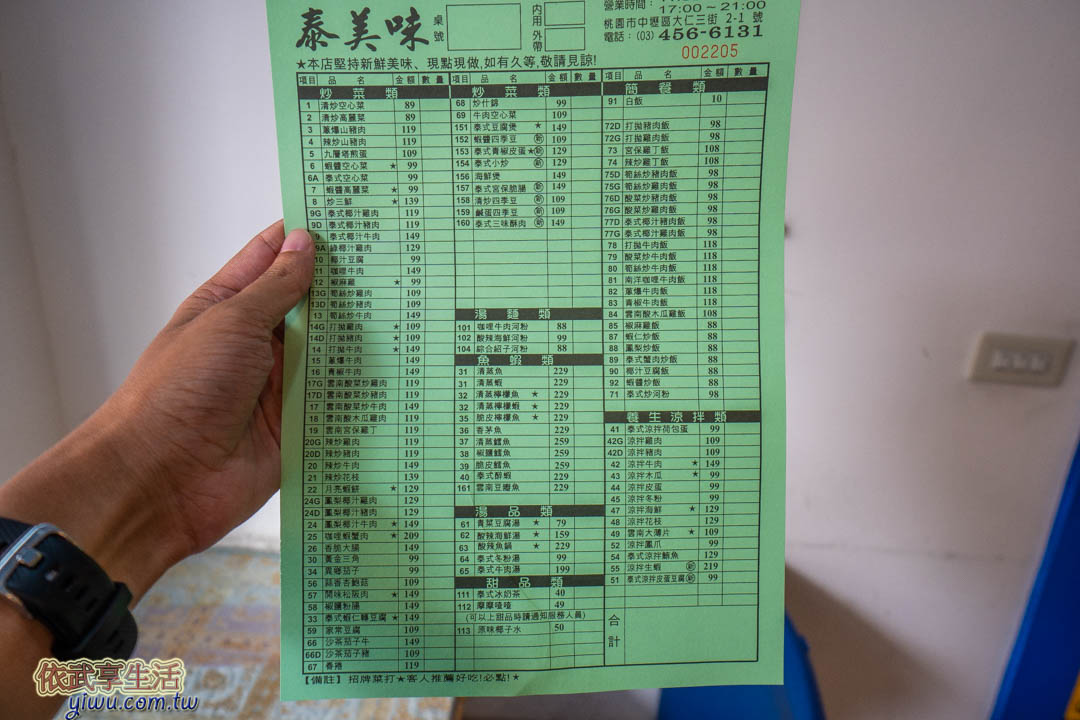 泰美味
桌號
內用
外帶
營業時間：
17:00～21:00
桃園市中壢區大仁三街 2-1 號
電話：(03) 456-6131
002205
★本店堅持新鮮美味、現點現做,如有久等,敬請見諒!
項目 品名 金額 數量
炒菜類
1 清炒空心菜 89
2 清炒高麗菜 89
3 蔥爆山豬肉 119
4 辣炒山豬肉 119
5 九層塔煎蛋 109
6 蝦醬空心菜 ★ 99
6A 泰式空心菜 99
7 蝦醬高麗菜 ★ 99
8 炒三鮮 ★ 139
9G 泰式椰汁雞肉 119
9D 泰式椰汁豬肉 119
9 泰式椰汁牛肉 149
9A 綠椰汁雞肉 129
10 椰汁豆腐 99
11 咖哩牛肉 149
12 椒麻雞 ★ 99
13G 筍絲炒雞肉 109
13D 筍絲炒豬肉 109
13 筍絲炒牛肉 149
14G 打拋雞肉 ★ 109
14D 打拋豬肉 ★ 109
14 打拋牛肉 ★ 149
15 蔥爆牛肉 149
16 青椒牛肉 149
17G 雲南酸菜炒雞肉 119
17D 雲南酸菜炒豬肉 119
17 雲南酸菜炒牛肉 149
18 雲南酸木瓜雞肉 119
19 雲南宮保雞丁 119
20G 辣炒雞肉 119
20D 辣炒豬肉 119
20 辣炒牛肉 149
21 辣炒花枝 139
22 月亮蝦餅 ★ 129
24G 鳳梨椰汁雞肉 129
24D 鳳梨椰汁豬肉 129
24 鳳梨椰汁牛肉 ★ 149
25 咖哩蝦蟹肉 ★ 209
26 香脆大腸 149
30 黃金三角 99
34 異鄉茄子 99
56 蒜香杏鮑菇 109
57 開味松阪肉 ★ 149
58 椒鹽粉腸 149
33 泰式蝦仁轉豆腐 ★ 149
59 家常豆腐 109
66 沙茶茄子牛 149
66D 沙茶茄子豬 109
67 香捲 119
項目 品名 金額 數量
炒菜類
68 炒什錦 99
69 牛肉空心菜 109
151 泰式豆腐煲 ★ 149
152 蝦醬四季豆 新 109
153 泰式青椒皮蛋★新 129
154 泰式小炒 新 129
156 海鮮煲 149
157 泰式宮保脆腸 新 149
158 清炒四季豆 新 109
159 鹹蛋四季豆 新 109
160 泰式三味酥肉 新 149
湯麵類
101 咖哩牛肉河粉 88
102 酸辣海鮮河粉 99
104 綜合紹子河粉 88
魚蝦類
31 清蒸魚 229
31 清蒸蝦 229
32 清蒸檸檬魚 ★ 229
32 清蒸檸檬蝦 ★ 229
35 脆皮檸檬魚 ★ 229
36 香茅魚 229
37 清蒸鱈魚 259
38 椒鹽鱈魚 259
39 脆皮鱈魚 259
40 泰式醉蝦 229
161 雲南豆瓣魚 229
湯品類
61 青菜豆腐湯 ★ 79
62 酸辣海鮮湯 ★ 159
63 酸辣魚鍋 ★ 229
64 泰式冬粉湯 99
65 泰式牛肉湯 199
甜品類
111 泰式冰奶茶 40
112 摩摩喳喳 49
(可以上甜品時請通知服務人員)
113 原味椰子水 50
項目 品名 金額 數量
簡餐類
91 白飯 10
72D 打拋豬肉飯 98
72G 打拋雞肉飯 98
73 宮保雞丁飯 108
74 辣炒雞丁飯 108
75D 筍絲炒豬肉飯 98
75G 筍絲炒雞肉飯 98
76D 酸菜炒豬肉飯 98
76G 酸菜炒雞肉飯 98
77D 泰式椰汁豬肉飯 98
77G 泰式椰汁雞肉飯 98
78 打拋牛肉飯 118
79 酸菜炒牛肉飯 118
80 筍絲炒牛肉飯 118
81 南洋咖哩牛肉飯 118
82 蔥爆牛肉飯 118
83 青椒牛肉飯 118
84 雲南酸木瓜雞飯 108
85 椒麻雞飯 88
87 蝦仁炒飯 88
88 鳳梨炒飯 88
89 泰式蟹肉炒飯 88
90 椰汁豆腐飯 88
92 蝦醬炒飯 88
71 泰式炒河粉 98
養生涼拌類
41 泰式涼拌荷包蛋 99
42G 涼拌雞肉 109
42D 涼拌豬肉 109
42 涼拌牛肉 ★ 149
43 涼拌木瓜 ★ 99
44 涼拌皮蛋 99
45 涼拌冬粉 99
47 涼拌海鮮 ★ 129
48 涼拌花枝 129
49 雲南大薄片 ★ 109
52 涼拌鳳爪 99
54 泰式涼拌鮪魚 129
55 涼拌生蝦 新 219
51 泰式涼拌皮蛋豆腐新 99
合計
【備註】招牌菜打★客人推薦好吃!必點!★
依武享生活
yiwu.com.tw